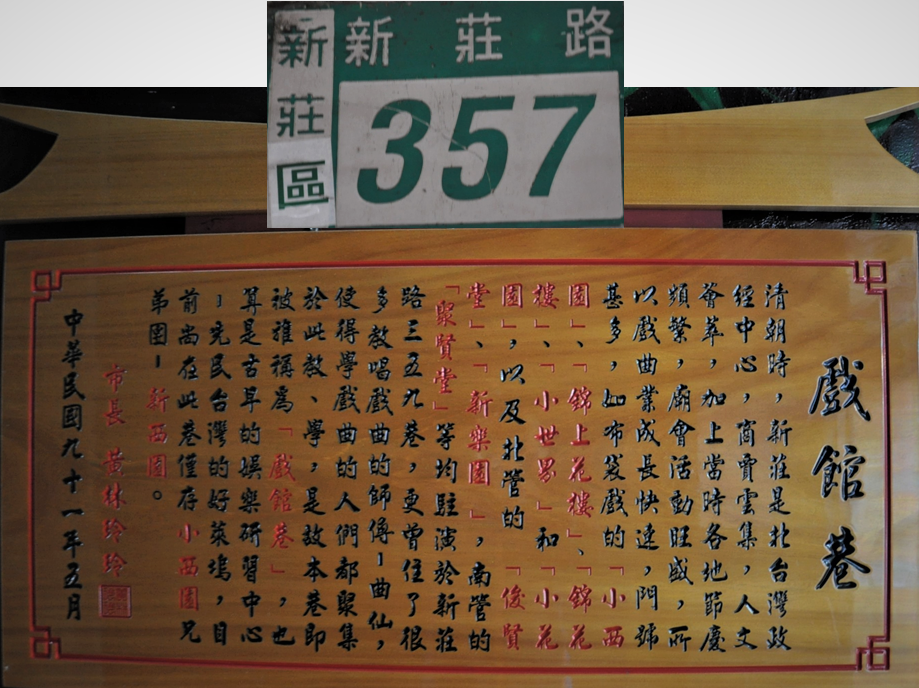 新莊路
新莊區
357
戲館巷
清朝時，新莊是北台灣政
經中心，商賈雲集，人文
薈萃，加上當時各地節慶
頻繁，廟會活動旺盛，所
以戲曲業成長快速，門號
甚多，如布袋戲的「小西
園」、「錦上花樓」、「錦花
樓」、「小世界」和「小花
園」，以及北管的「俊賢
堂」、「新樂園」，南管的
「聚賢堂」等均駐演於新莊
路三五九巷，更曾住了很
多教唱戲曲的師傅－曲仙，
使得學戲曲的人們都聚集
於此教、學，是故本巷即
被雅稱為「戲館巷」，也
算是古早的娛樂研習中心
－先民台灣的好萊塢，目
前尚在此巷僅存小西園兄
弟園－新西園。
市長 黃林玲玲
中華民國九十一年五月